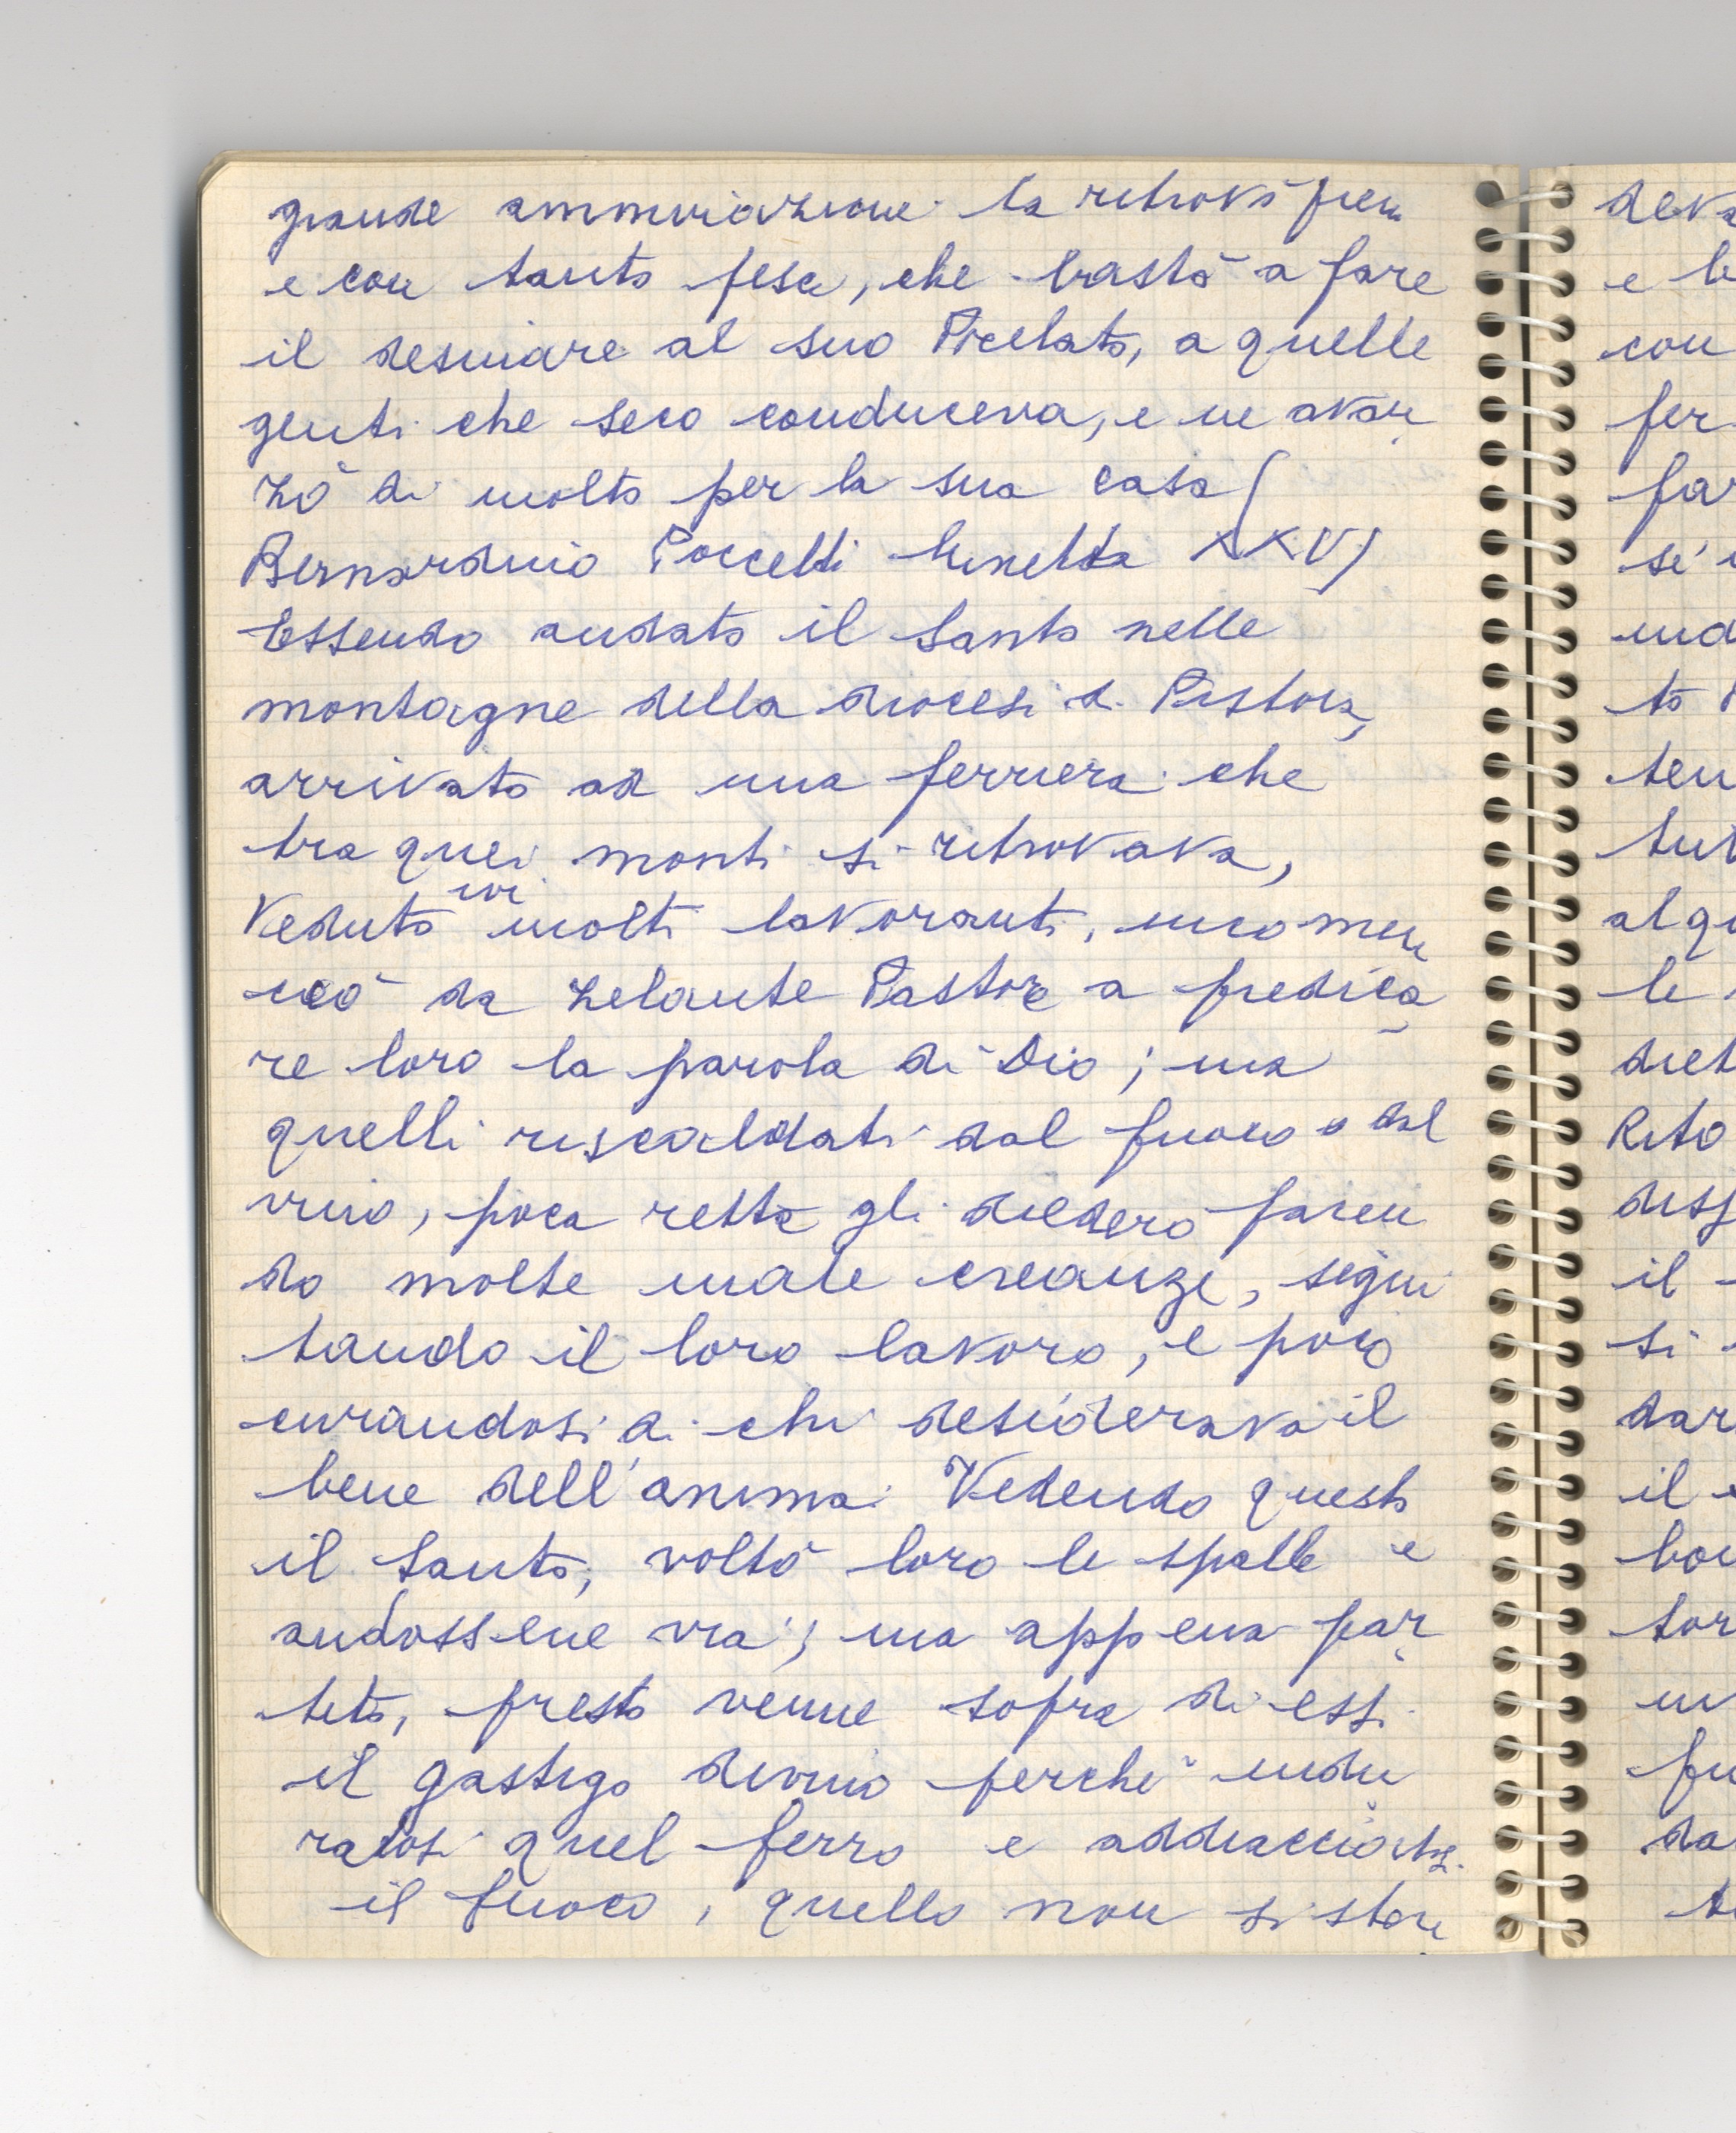 grande ammirazione la ritrovò pien
e con tanto pesce, che bastò a fare
il desinare al suo Prelato, a quelle
genti che seco conduceva, e ne avan
zò di molto per la sua casa
Bernardino Poccetti lunetta XXV)
Essendo andato il Santo nelle
montagne della diocesi di Pistoia,
arrivato ad una ferriera che
tra quei monti si ritrovava,
veduto ivi molti lavoranti, incomin
ciò da zelante Pastore a predica
re loro la parola di Dio; ma
quelli riscaldati dal fuoco e dal
vino, poca retta gli diedero facen
do molte male creanze, segui
tando il loro lavoro, e poco
curandosi di chi desiderava il
bene dell'anima. Vedendo questo
il Santo, voltò loro le spalle e
andossene via; ma appena par
tito, presto venne sopra di essi
il gastigo divino perché indu
ratosi quel ferro e addiacciatosi
il fuoco, quello non si
deva
e
con
fer
far
se
to
ten
al
le
Rito
il
si
dar
il
tor
da